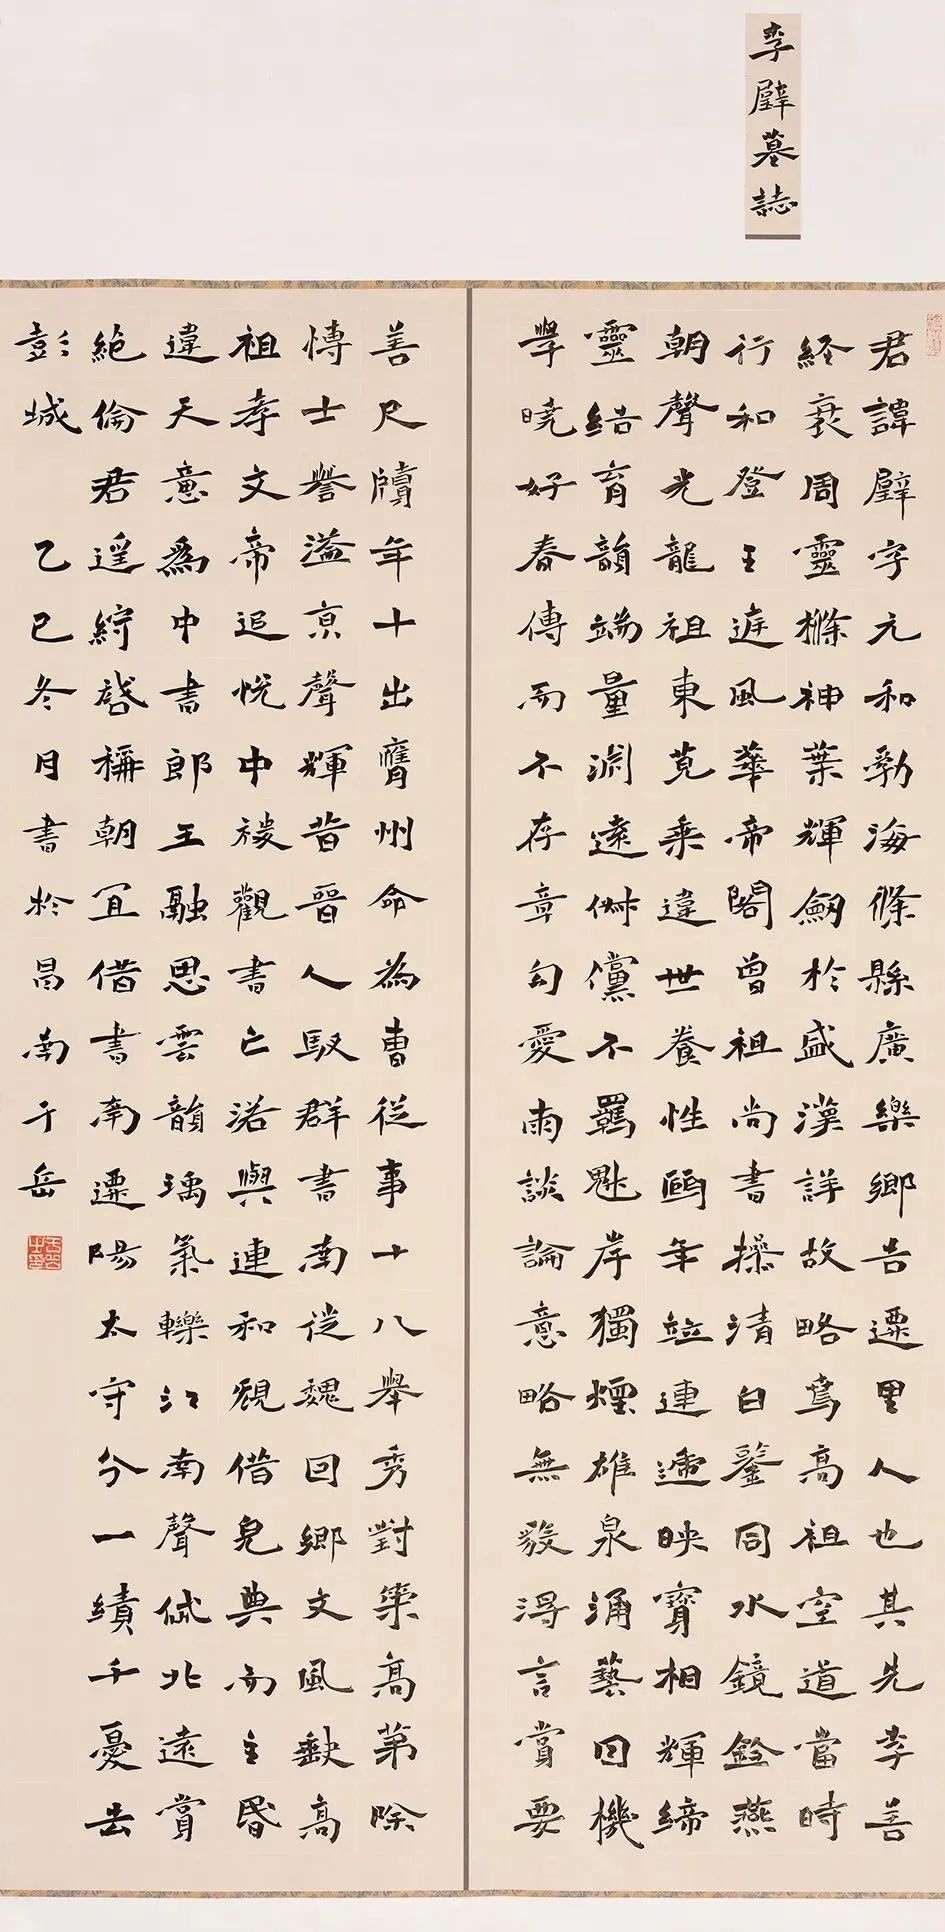 李璧墓誌
君諱璧字元和勃海條縣廣樂鄉吉遷里人也其先李善
経衰周靈櫾神葉輝劒於盛漢詳故略焉高祖空道當時
行和登王庭風華帝閣曾祖尚書操清白鑒同水鏡銓燕
朝聲光龍祖東莞乘違世養性頤年竝連遞映寶相輝締
靈結育韻端量淵遠倜儻不羈魁岸獨㷼雄泉涌藝因機
學曉好春傳而不存章句愛雨談論意略無發淂言賞要
善尺牘年十出膺州命為曹從事十八舉秀對䇿高第除
博士譽溢京聲輝昔晉人馭群書南從魏回鄉文風缺高
祖孝文帝追悦中秘觀書亡落與連和規借皃典而主昏
違天意為中書郎王融思雲韻瑀氣轢江南聲俶北遠賞
絶倫君遥綍啓稱朝宜借書南遷陽太守分一績千憂去
彭城 乙巳冬月書於昌南于岳